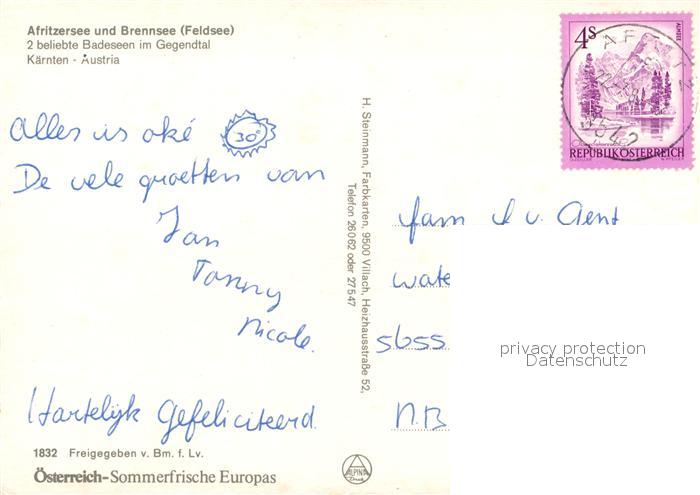 Afritzersee und Brennsee (Feldsee)
2 beliebte Badeseen im Gegendtal
Kärnten - Austria
Alles is oké 30°
De vele groetten van
Jan
Tonny
Nicole.
Hartelijk Gefeliciteerd.
1832 Freigegeben v. Bm. f. Lv.
Österreich-Sommerfrische Europas
H. Steinmann, Farbkarten, 9500 Villach, Heizhausstraße 52,
Telefon 26062 oder 27547
ALPINA
Druck
4s
ALMSEE
REPUBLIK ÖSTERREICH
AFRITZ
9542
fam d v. Gent
wate
5655
N.B
privacy protection
Datenschutz